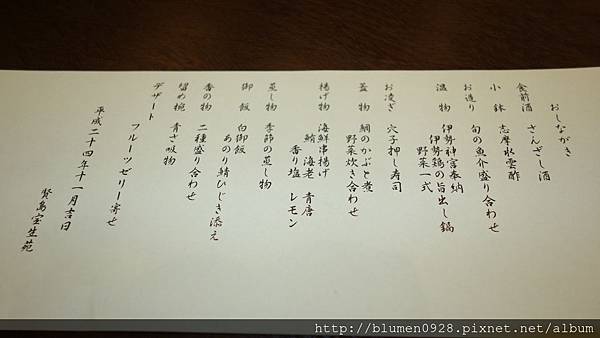 おしながき
食前酒　さんざし酒
小　鉢　志摩水雲酢
お造り　旬の魚介盛り合わせ
温　物　伊勢神宮奉納
伊勢鶏の旨出し鍋
野菜一式
お凌ぎ　穴子押し寿司
蓋　物　鯛のかぶと煮
野菜炊き合わせ
揚げ物　海鮮串揚げ
鮪　海老　青唐
香り塩　レモン
蒸し物　季節の蒸し物
御　飯　白御飯
あのり鯖ひじき添え
香の物　二種盛り合わせ
留め椀　青さ吸物
デザート
フルーツゼリー寄せ
平成二十四年十一月吉日
賢島宝生苑
http://blumen0928.pixnet.net/album